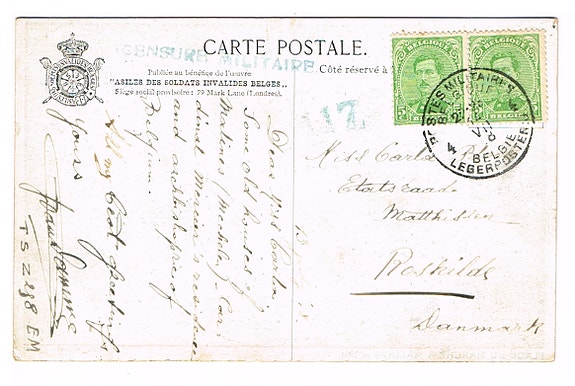 CENSURE MILITAIRE
CARTE POSTALE.
Publiée au bénéfice de l'œuvre
"ASILES DES SOLDATS INVALIDES BELGES"
Siège social provisoire : 79 Mark Lane (Londres).
Côté réservé à
BELGIQUE
BELGIQUE
POSTES MILITAIRES
4 BELGIE 4
LEGERPOSTERIJ
117
Dear Miss Carla
Some old houses of
Malines (Mechelen) Car-
dinal Mercier's residence
and archbishopric of
Belgium.
All my best greetings
Yours
TS Z 298 EM
Miss Carla
Etatsraad
Matthissen
Roskilde
Danmark